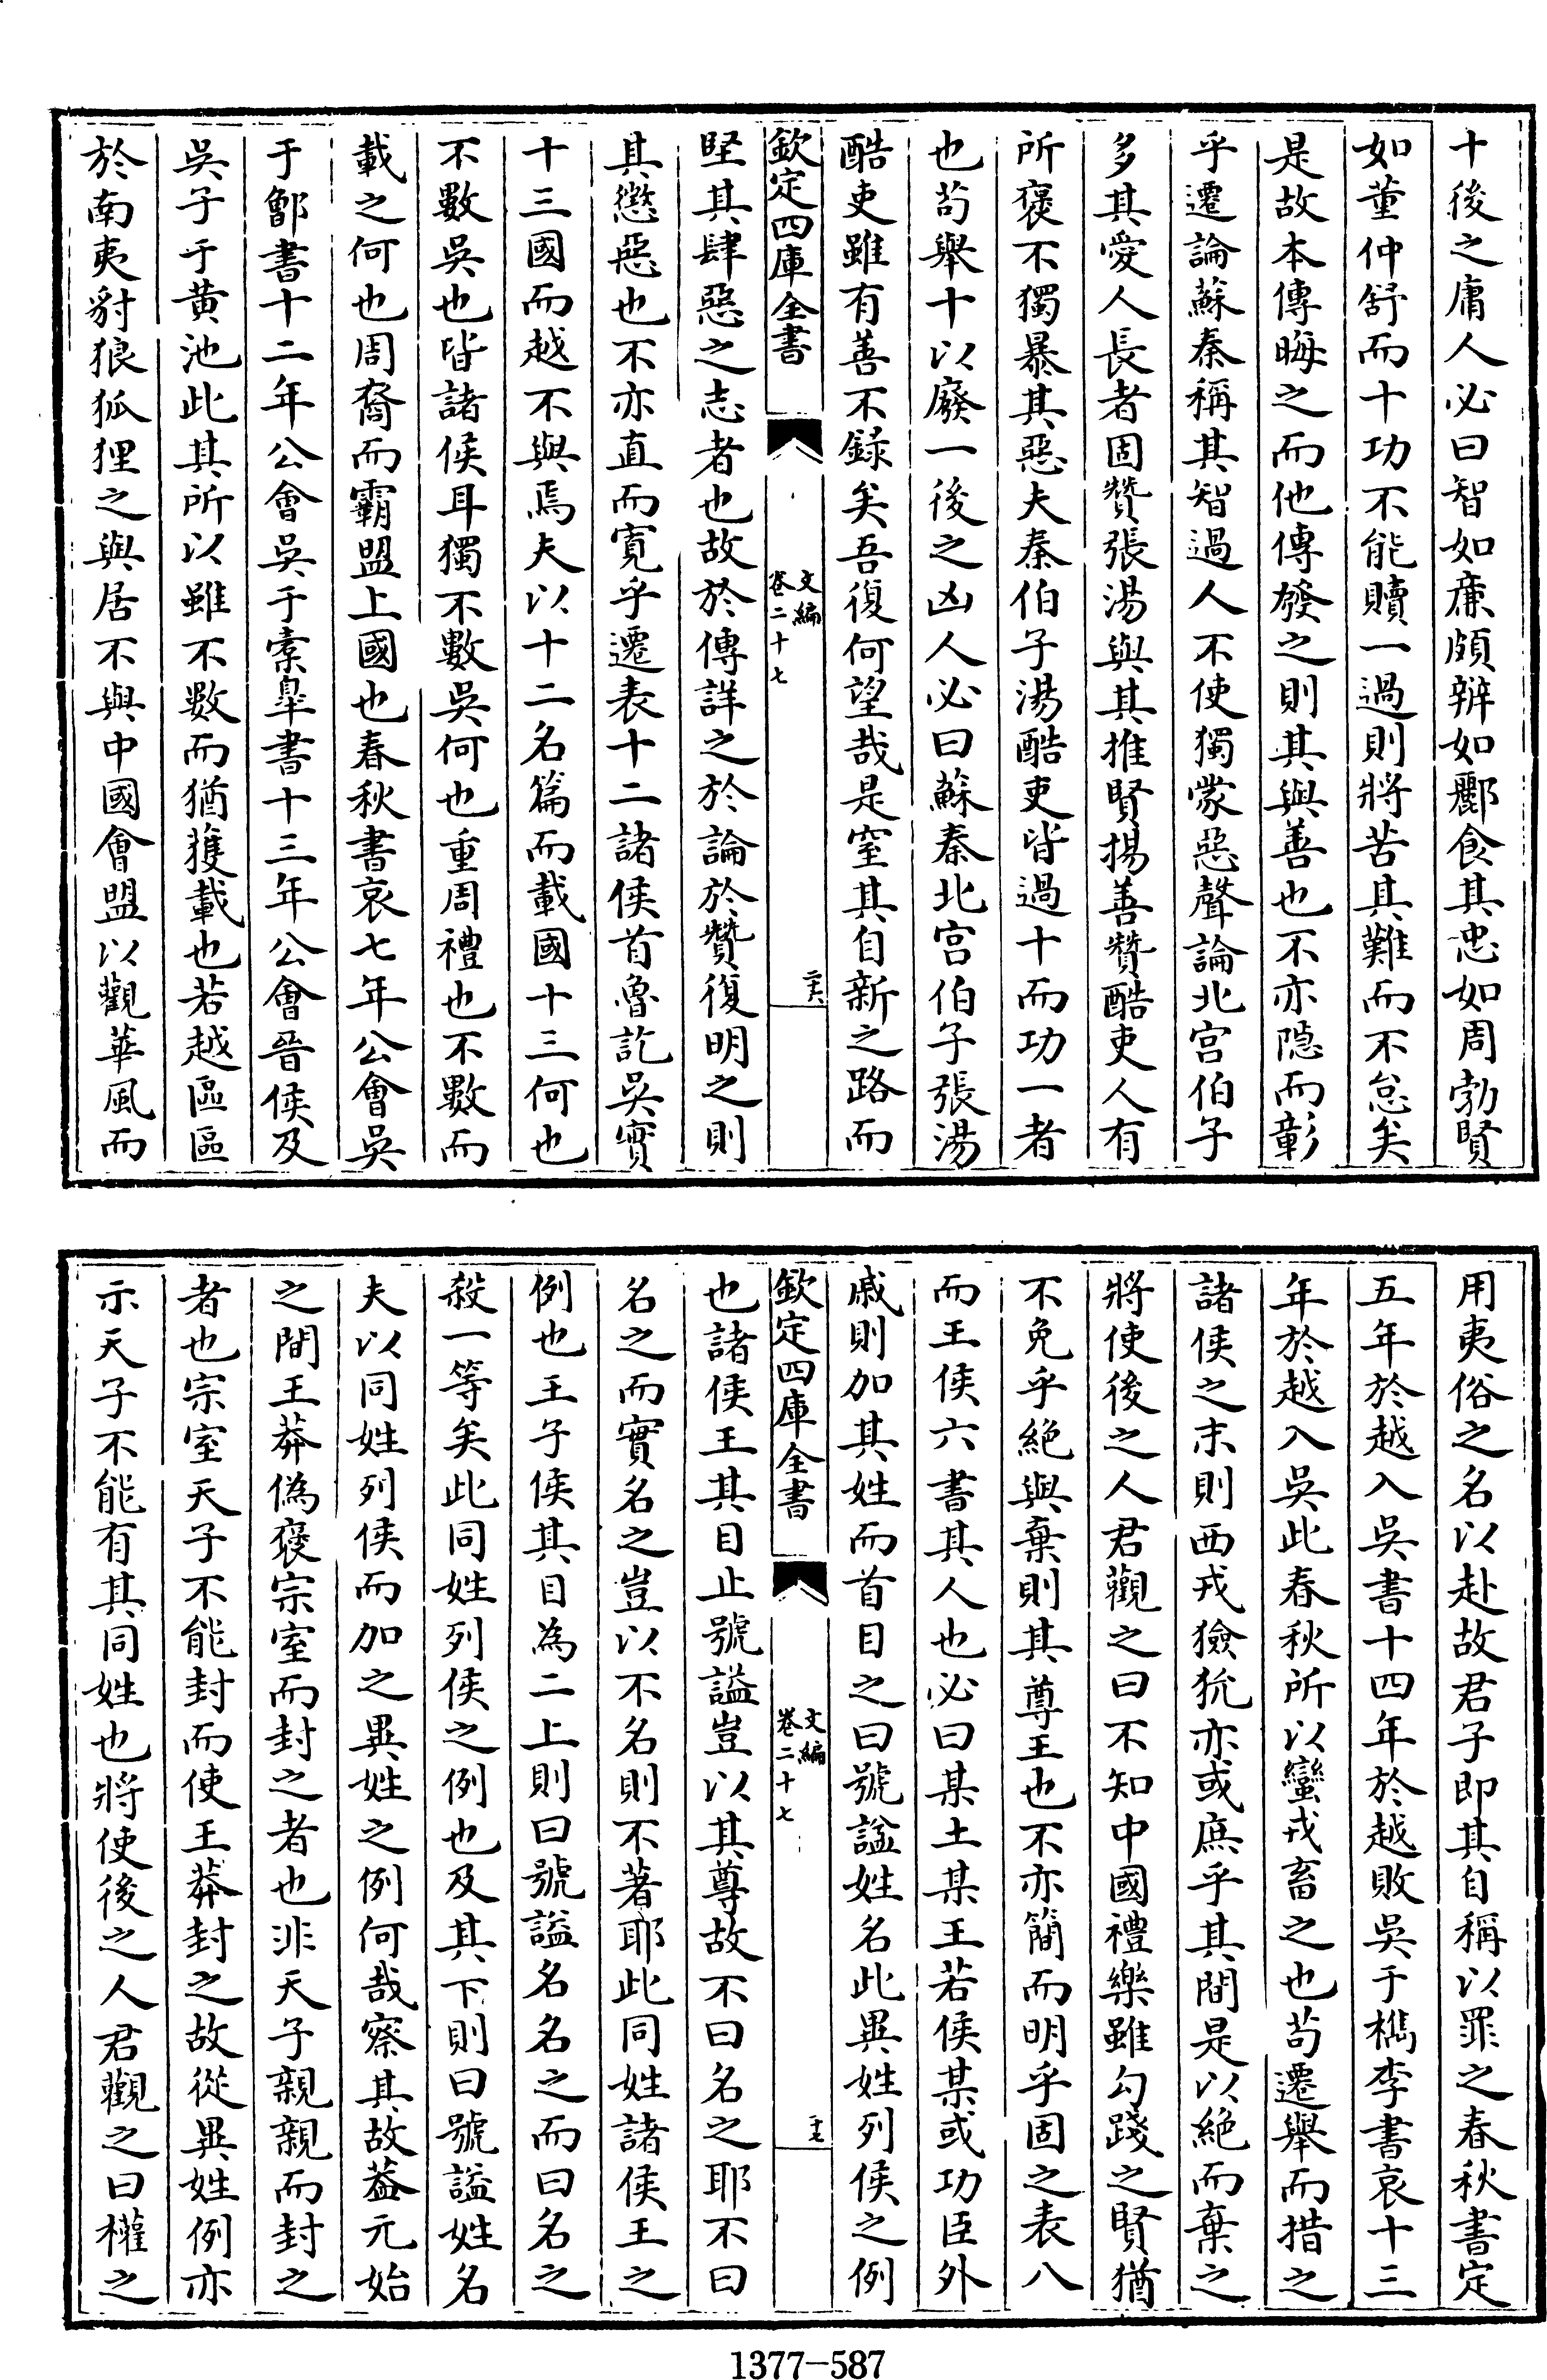 十後之庸人必曰智如亷頗辨如酈食其忠如周勃賢
如董仲舒而十功不能贖一過則將苦其難而不怠矣
是故本傳晦之而他傳發之則其與善也不亦隱而彰
乎遷論蘇秦稱其智過人不使獨蒙惡聲論北宫伯子
多其愛人長者固贊張湯與其推賢揚善贊酷吏人有
所褒不獨暴其惡夫秦伯子湯酷吏皆過十而功一者
也苟舉十以廢一後之凶人必曰蘇秦北宫伯子張湯
酷吏雖有善不録矣吾復何望哉是窒其自新之路而
欽定四庫全書
文編
卷二十七
二六
堅其肆惡之志者也故於傳詳之於論於贊復明之則
其懲惡也不亦直而寛乎遷表十二諸侯首魯訖吳實
十三國而越不與焉夫以十二名篇而載國十三何也
不數吳也皆諸侯耳獨不數吳何也重周禮也不數而
載之何也周裔而霸盟上國也春秋書哀七年公會吳
于鄫書十二年公會吳于槖臯書十三年公會晉侯及
吳子于黄池此其所以雖不數而猶獲載也若越區區
於南夷豺狼狐狸之與居不與中國會盟以觀華風而
用夷俗之名以赴故君子即其自稱以罪之春秋書定
五年於越入吳書十四年於越敗吳于檇李書哀十三
年於越入吳此春秋所以蠻戎畜之也苟遷舉而措之
諸侯之末則西戎獫狁亦或庶乎其間是以絶而棄之
將使後之人君觀之曰不知中國禮樂雖勾踐之賢猶
不免乎絶與棄則其尊王也不亦簡而明乎固之表八
而王侯六書其人也必曰某土某王若侯某或功臣外
戚則加其姓而首目之曰號諡姓名此異姓列侯之例
欽定四庫全書
文編
卷二十七
二七
也諸侯王其目止號謚豈以其尊故不曰名之耶不曰
名之而實名之豈以不名則不著耶此同姓諸侯王之
例也王子侯其目為二上則曰號謚名名之而曰名之
殺一等矣此同姓列侯之例也及其下則曰號謚姓名
夫以同姓列侯而加之異姓之例何哉察其故葢元始
之間王莽偽褒宗室而封之者也非天子親親而封之
者也宗室天子不能封而使王莽封之故從異姓例亦
示天子不能有其同姓也將使後之人君觀之曰權之
1377-587